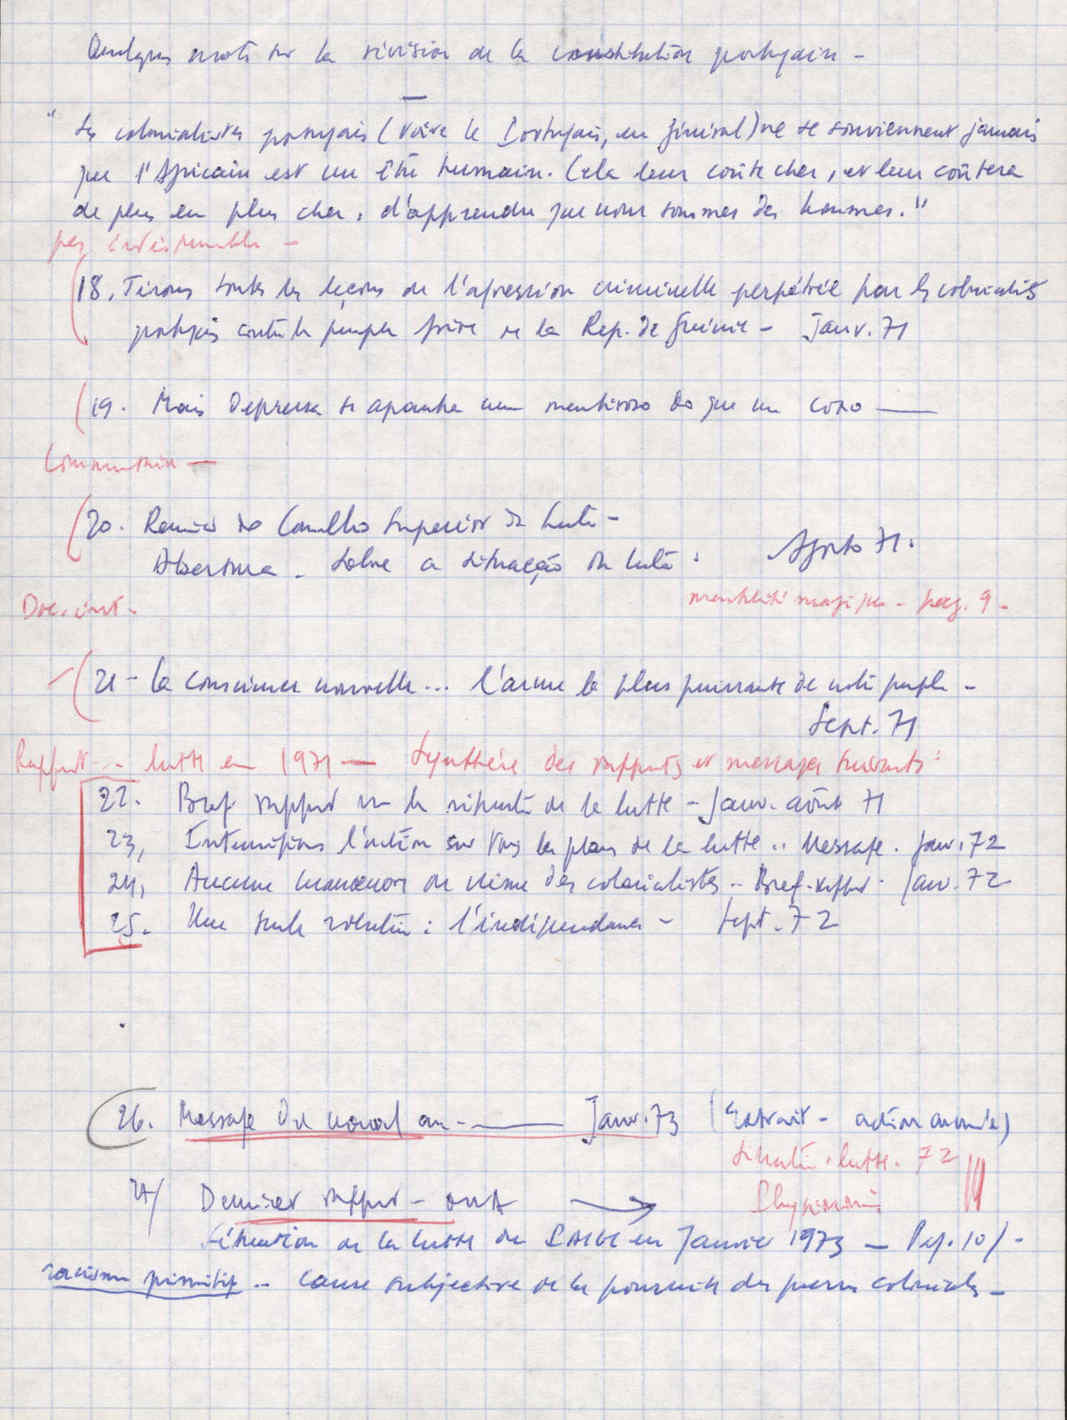 Quelques mots sur la révision de la constitution portugaise -
" Les colonialistes portugais (voire le Portugais, en général) ne se souviennent jamais
que l'Africain est un être humain. Cela leur coûte cher, et leur coûtera
de plus en plus cher, d'apprendre que nous sommes des hommes."
pas indispensable -
18, Tirons toutes les leçons de l'agression criminelle perpétrée par les colonialistes
portugais contre le peuple frère de la Rep. de Guinée - Janv. 71
19. Mais depressa se apanha um mentiroso do que um coxo —
Communiqué —
20. Reunião do Conselho Superior da Luta -
Abertura - Sobre a situação da luta. Agosto 71.
Doc. int. -
mentalité magique - pag. 9 -
21 - La conscience nouvelle... l'arme la plus puissante de notre peuple -
Sept. 71
Rapport - lutte en 1971 — Synthèse des rapports et messages suivants :
22. Bref rapport sur la situation de la lutte - Janv. août 71
23, Intensifions l'action sur tous les plans de la lutte .. Message. Janv. 72
24, Aucune de crime des colonialistes - Bref rapport. Janv. 72
25. Une seule solution : l'indépendance - Sept. 72
26. Message du nouvel an - — Janv. 73 (Extrait - action armée)
Situation lutte. 72
27/ Dernier rapport - ONU →
Situation de la lutte du PAIGC en Janvier 1973 — Pag. 10/-
racisme primitif - cause subjective de la poursuite des guerres coloniales -